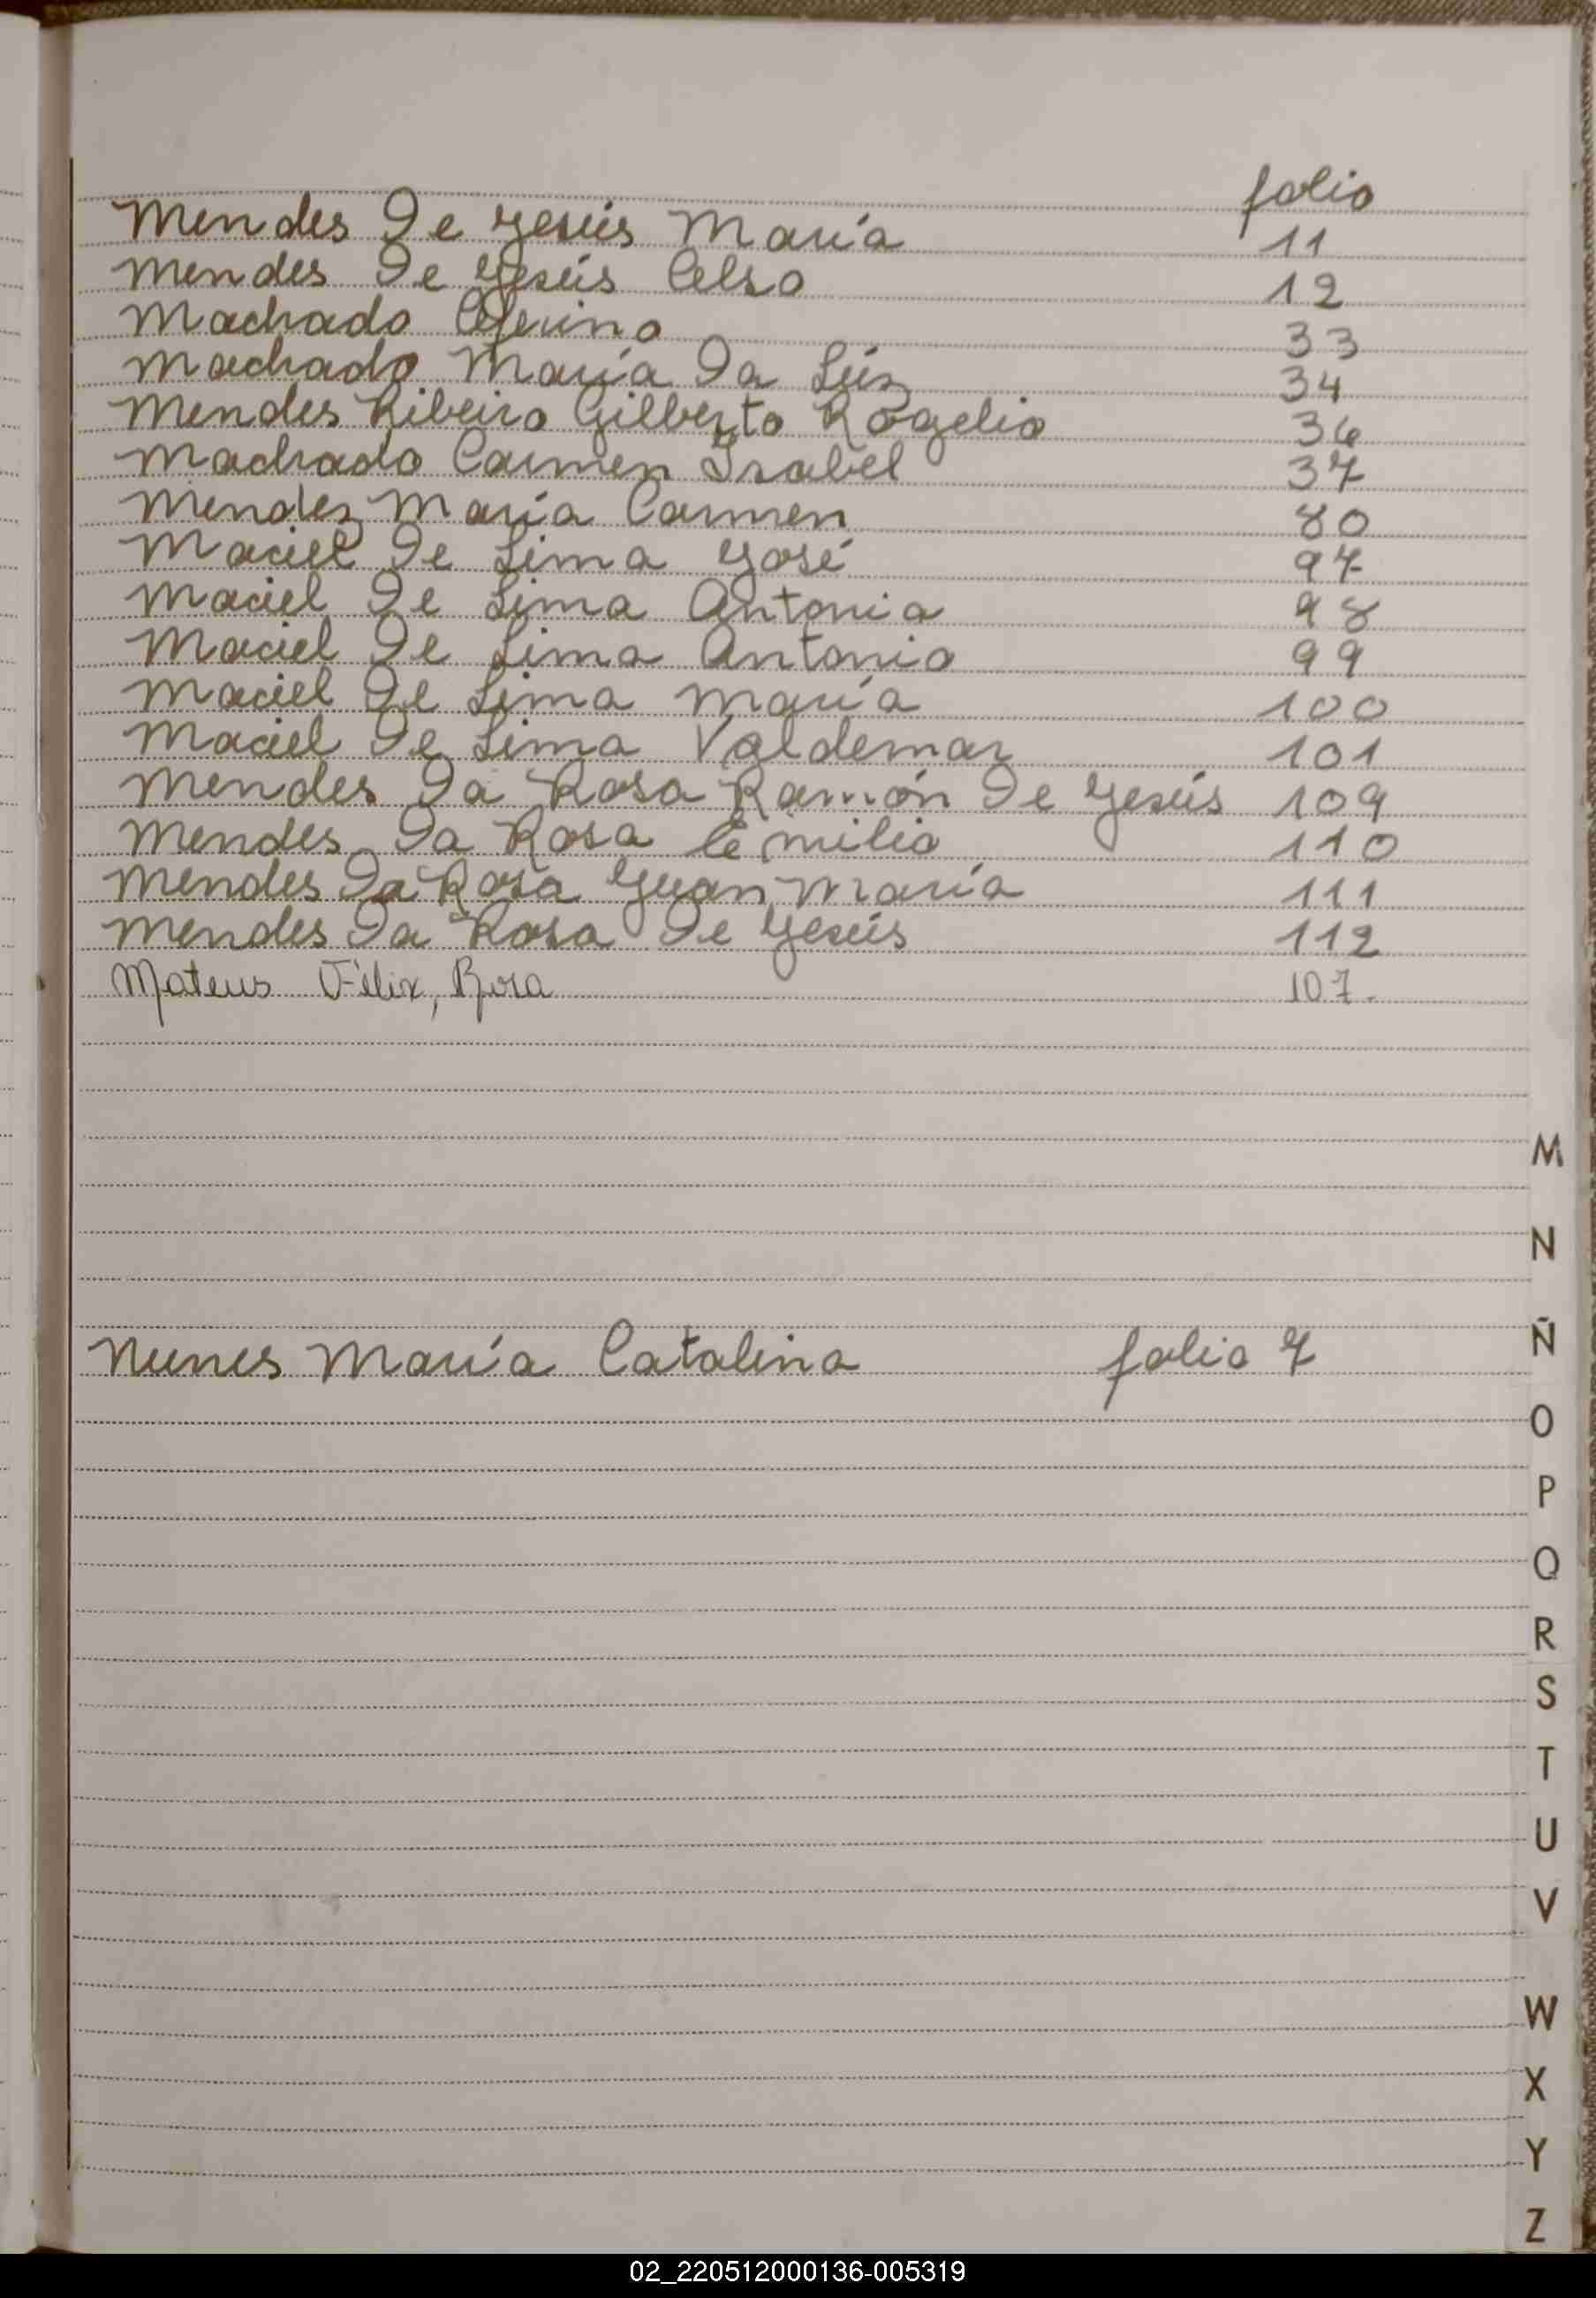 folio
Mendes De Jesús María 11
Mendes De Jesús Celso 12
Machado Ceferino 33
Machado María Da Lúz 34
Mendes Ribeiro Gilberto Rogelio 36
Machado Carmen Isabel 37
Mendez María Carmen 80
Maciel De Lima José 97
Maciel De Lima Antonia 98
Maciel De Lima Antonio 99
Maciel De Lima María 100
Maciel De Lima Valdemar 101
Mendes Da Rosa Ramón De Jesús 109
Mendes Da Rosa Emilio 110
Mendes Da Rosa Juan María 111
Mendes Da Rosa De Jesús 112
Mateus Félix, Rosa 107.
M
N
Nunes María Catalina folio 7
Ñ
O
P
Q
R
S
T
U
V
W
X
Y
Z
02_220512000136-005319